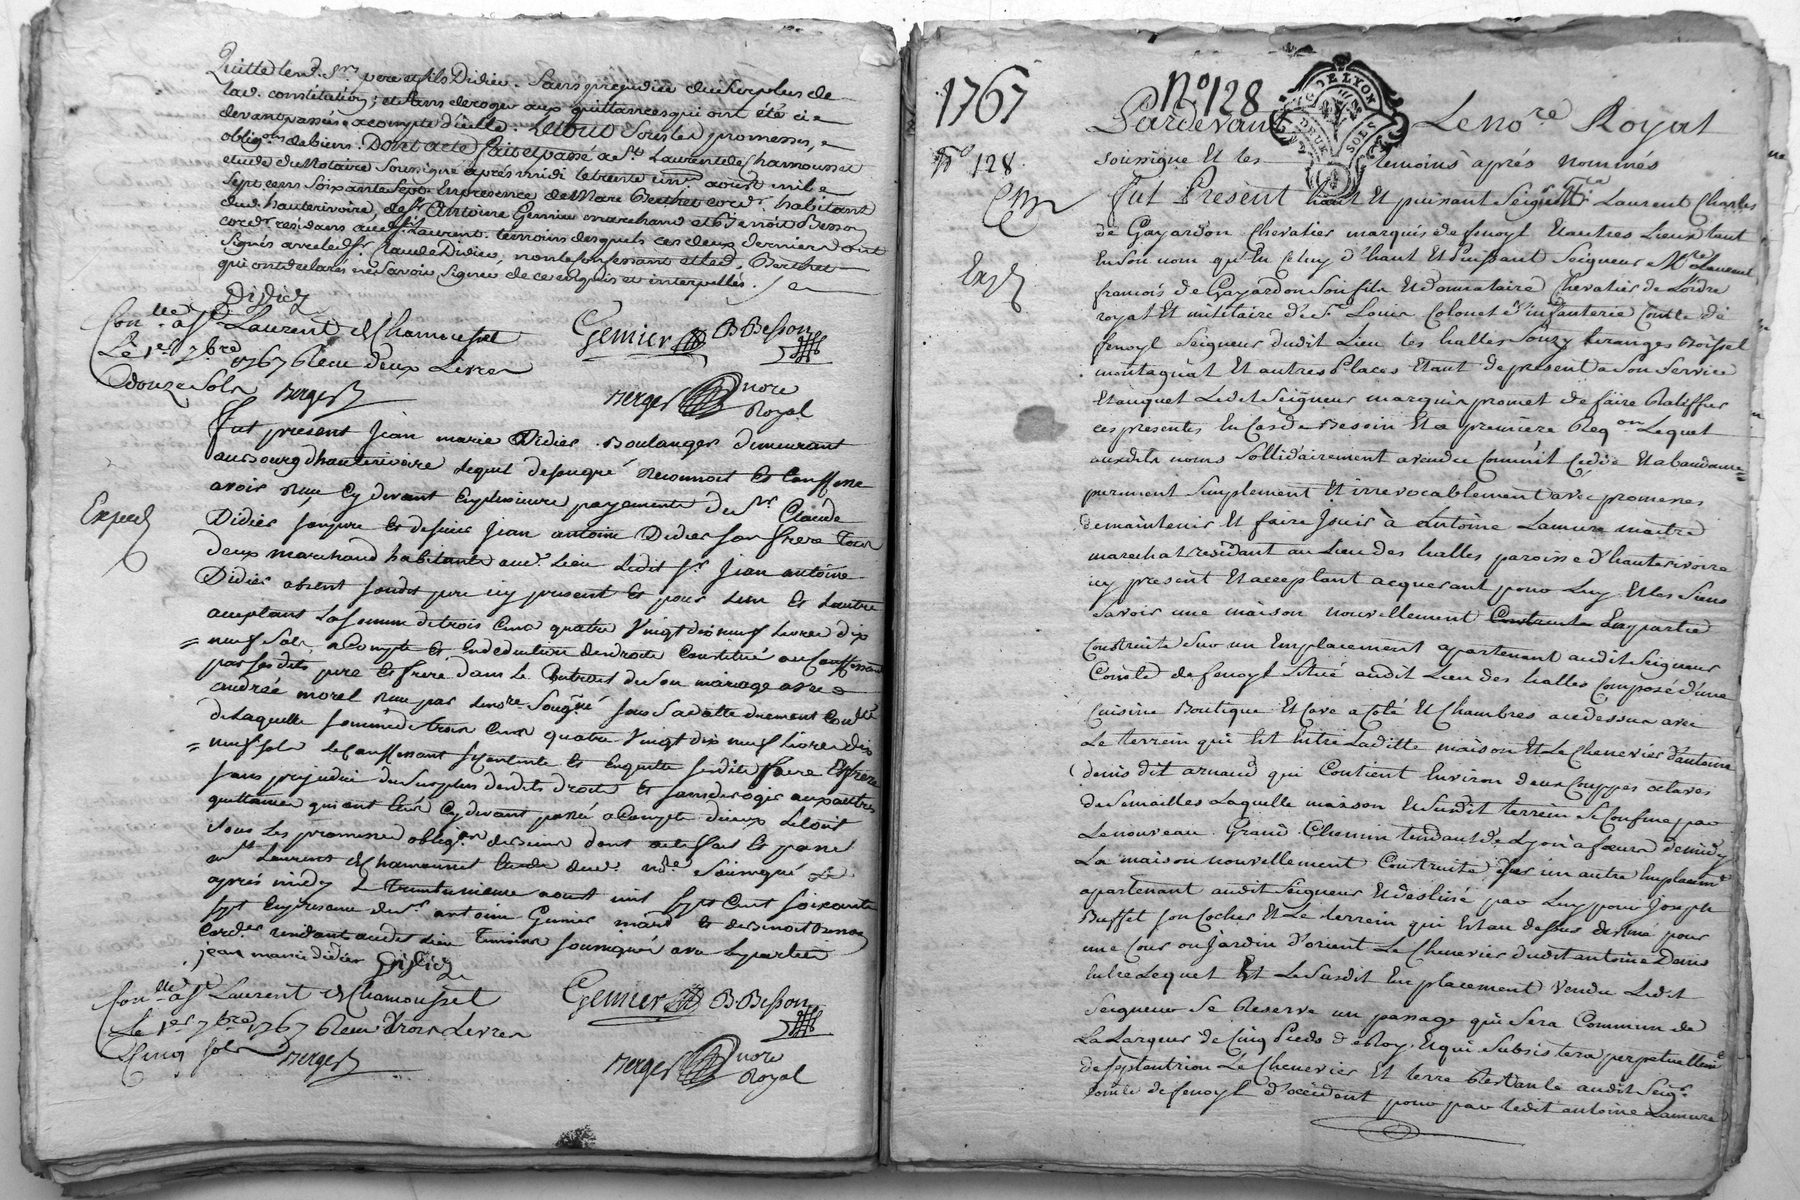 Quitte led. Sr. pere et fils Didier. Sans prejudice du surplus de
lad. constitution; et sans deroger aux quittances qui ont été cy
devant passées acompte d'icelle. Le tout sous les promesses,
obligons. de biens. Dont acte fait et passé a St. Laurent de Chamousset
etude du Notaire Soussigné après midi le trente un aoust mil
Sept cens Soixante Sept En presence de Marc Berthet cordr. habitant
dud. hauterivoire, de Sr. Antoine Gemier marchand et Benoit Besson
cordr. residans aud. St. Laurent. temoins desquels ces deux derniers ont
Signés avec led. Sr. Claude Didier, non le confessant et led. Berthet
qui ont declarés ne Savoir Signer de ce enquis et interpellés.
Didier
Conllé. a St. Laurent de Chamousset
Le 1er 7bre 1767 Reçu deux Livres
douze Sols Berger
Gemier B. Besson
Berger nore
Royal
Fut present Jean marie Didier Boulanger demeurant
au Bourg d'hauterivoire lequel de son gré reconnoit et confesse
avoir Reçu cy devant en plusieurs payements de Sr. Claude
Didier son pere et de sieur Jean antoine Didier son frere tous
deux marchand habitants aud. Lieu Ledit Sr. Jean antoine
Expedé
Didier absent sondit pere icy present et pour Lun et Lautre
acceptant La somme de trois Cens quatre Vingt dix neuf livres dix
neuf Sols, acompte et En deduction des droits Constitué au Confessant
par sesdits pere et frere dans le Contrat de son mariage avec
andrée morel Reçu par Le nore Sousgné sous sa datte duement Conllé
de Laquelle somme de trois Cens quatre Vingt dix neuf livres dix
neuf sols le Confessant se contente et En quitte sesdits pere Et frere
sans prejudice du surplus desdits droits et sans deroger aux autres
quittances qui ont Eté cy devant passé acompte d'iceux Le tout
sous Les promesses obligon de biens dont acte fait et passé
a St. Laurent de Chamousset Etude dud. nore Soussigné Le
après midy Le Trente unieme aoust mil Sept Cent soixante
sept En presence de Sr. antoine Gemier mard et de Benoit Besson
Cordr residants audit Lieu Temoins soussigné avec Les parties
jean marie didier Didier
Conllé. a St. Laurent de Chamousset
Le 1er 7bre 1767 Reçu trois Livres
Cinq sols Berger
Gemier B. Besson
Berger nore
Royal
1767 No 128
GÉN. DE LYON
DEUX SOLS
Pardevant Le nore Royal
No 128
soussigné Et les temoins après nommés
Fut Present haut Et puissant Seigneur Mre Laurent Charles
de Gayardon Chevalier marquis de fenoyl Et autres Lieux tant
En son nom qu'En Celuy d'haut Et Puissant Seigneur Mre Laurent
Exp
francois de Gayardon son fils Et donnataire Chevalier de Lordre
royal Et militaire de St. Louis Colonel d'infanterie Comte de
fenoyl Seigneur dudit Lieu les halles Souzy Avanges Boissel
montagnat Et autres Places Etant de present a Son Service
Et auquel Ledit Seigneur marquis promet de faire Ratiffier
ces presentes En Cas de Besoin Et a première Reqon Lequel
auxdits noms Sollidairement a vendu Commit Cédé Et abandonné
purement Simplement Et irrevocablement avec promesses
de maintenir Et faire Jouir à Antoine Lamure maitre
marechal residant au Lieu des halles paroisse d'hauterivoire
icy present Et acceptant acquerant pour Luy Et les Siens
Savoir une maison nouvellement Construite En partie
Construite sur un Emplacement apartenant audit Seigneur
Comte de fenoyl Situé audit Lieu des halles Composé d'une
Cuisine Boutique Et Cave a Coté Et Chambres au dessus avec
Le terrein qui Est Entre Laditte maison Et Le Chenevier d'antoine
denis dit arnaud qui Contient Environ deux Couppes octaves
de Semailles Laquelle maison Et Susdit terrein Se Confine par
Le nouveau Grand Chemin tendant de Lyon a feurs de midy
La maison nouvellement Construite sur un autre Emplacemt
apartenant audit Seigneur Et destiné par Luy pour Joseph
Buffet son Cocher Et Le terrein qui Est au dessus destiné pour
une Cour ou Jardin d'orient Le Chenevier dudit antoine Denis
Entre Lequel Et Le Susdit Emplacement vendu Ledit
Seigneur Se Reserve un passage qui Sera Commun de
La Largeur de Cinq Pieds de Roy. Et qui Subsistera perpetuellemt
de Septentrion Le Chenevier Et terre Restante audit Seigr
Comte de fenoyl d'occident pour par Ledit antoine Lamure